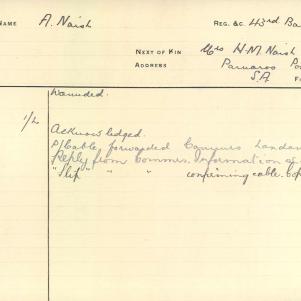 NAME A. Naish REG. &C. 43rd Ba
NEXT OF KIN Mrs H. M. Naish
ADDRESS Parnaroo Po
S.A F
Wounded.
1/2
Acknowledged.
P/Cable forwarded London
Reply from Commrs. Information
"Slip" " " confirming cable.